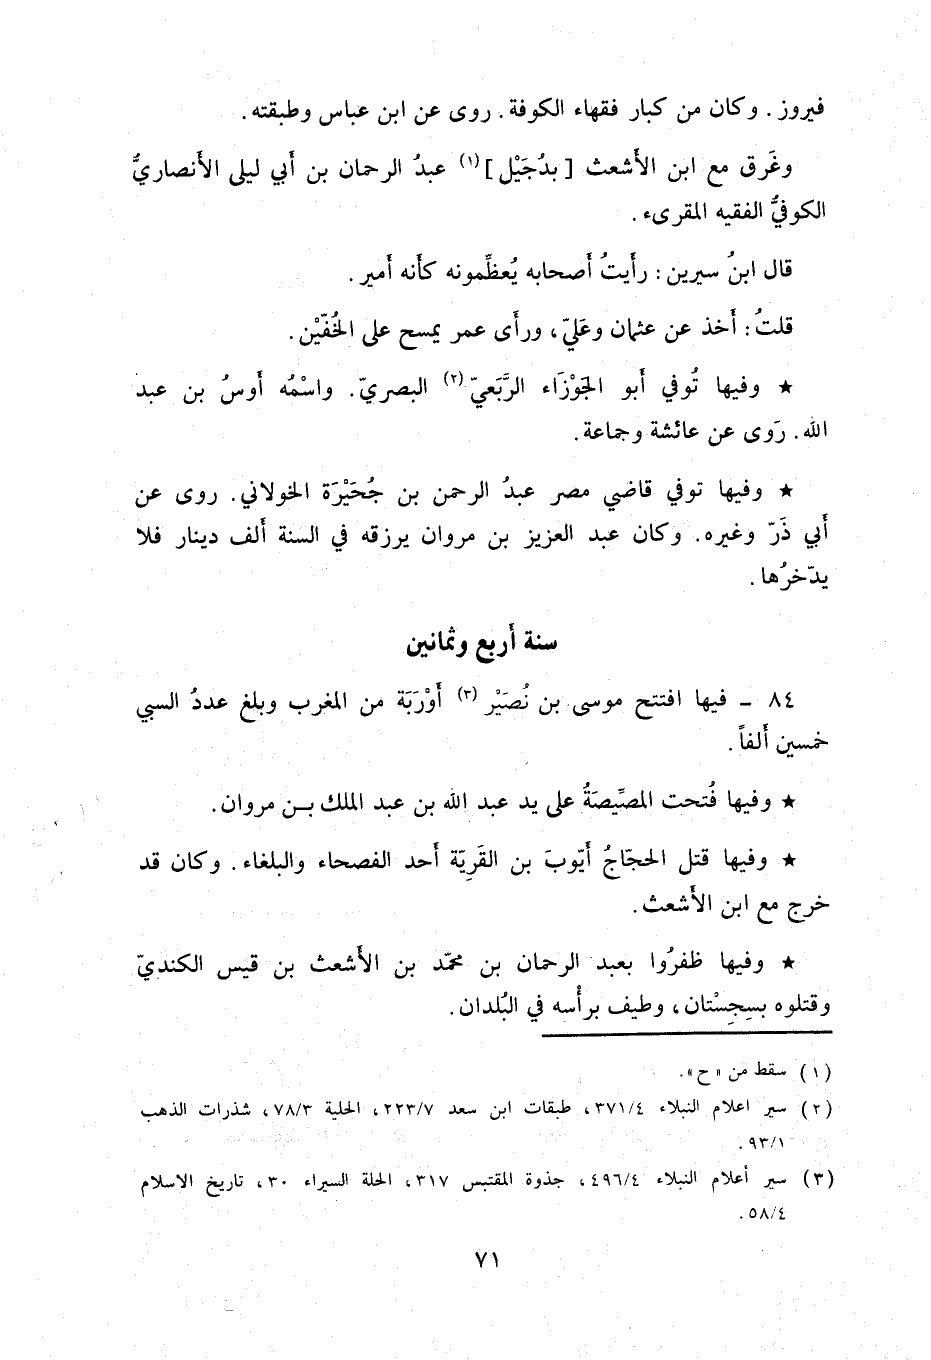 فيروز. وكان من كبار فقهاء الكوفة. روى عن ابن عباس وطبقته.
وغَرق مع ابن الأشعث [بدُجَيْل] (١) عبدُ الرحمان بن أبي ليلى الأنصاريُّ
الكوفيُّ الفقيه المقرىء.
قال ابنُ سيرين: رأيتُ أصحابه يُعظِّمونه كأنه أمير.
قلتُ: أخذ عن عثمان وعَليّ، ورأى عمر يمسح على الخُفّيْن.
★ وفيها تُوفي أبو الجَوْزَاء الرَّبَعيّ (٢) البصريّ. واسْمُه أوسُ بن عبد
الله. رَوى عن عائشة وجماعة.
★ وفيها توفي قاضي مصر عبدُ الرحمن بن جُحَيْرَة الخولاني. روى عن
أبي ذَرّ وغيره. وكان عبد العزيز بن مروان يرزقه في السنة ألف دينار فلا
يدّخرُها.
سنة أربع وثمانين
٨٤ - فيها افتتح موسى بن نُصَيْر (٣) أوْرَبَة من المغرب وبلغ عددُ السبي
خمسين ألفاً.
★ وفيها فُتحت المصِّيصَةُ على يد عبد الله بن عبد الملك بـن مروان.
★ وفيها قتل الحجّاجُ أيّوبَ بن القَرِيّة أحد الفصحاء والبلغاء. وكان قد
خرج مع ابن الأشعث.
★ وفيها ظفرُوا بعبد الرحمان بن محمّد بن الأشعث بن قيس الكنديّ
وقتلوه بسِجِسْتان، وطيف برأْسه في البُلدان.
(١) سقط من «ح».
(٢) سير اعلام النبلاء ٣٧١/٤، طبقات ابن سعد ٢٢٣/٧، الحلية ٧٨/٣، شذرات الذهب
٩٣/١.
(٣) سير أعلام النبلاء ٤٩٦/٤، جذوة المقتبس ٣١٧، الحلة السيراء ٣٠، تاريخ الاسلام
٥٨/٤.
٧١